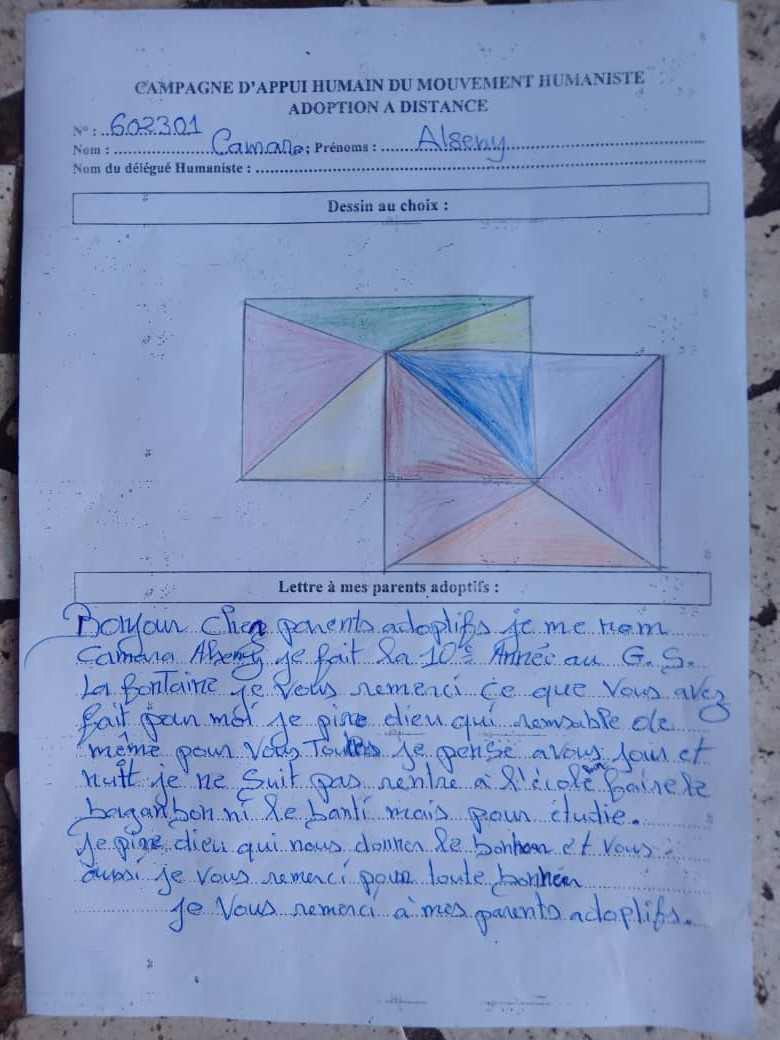 CAMPAGNE D'APPUI HUMAIN DU MOUVEMENT HUMANISTE
ADOPTION A DISTANCE
N° : 602301
Nom : Camara ; Prénoms : Alseny
Nom du délégué Humaniste :
Dessin au choi :
Lettre à mes parents adoptifs :
Bonjour cher parents adoptifs je me nom
Camara Alseny je fait la 10e Année au G.S.
La fontaine je vous remerci ce que vous avez
fait pour moi je prie dieu qui
de
même pour vous je pense a vous jour et
nuit je ne suit pas rentre à l'école faire le
ni le banti mais pour étudie.
Je prie dieu qui nous donner le bonheur et vous
aussi je vous remerci pour toute bonheur
je vous remerci à mes parents adoptifs.